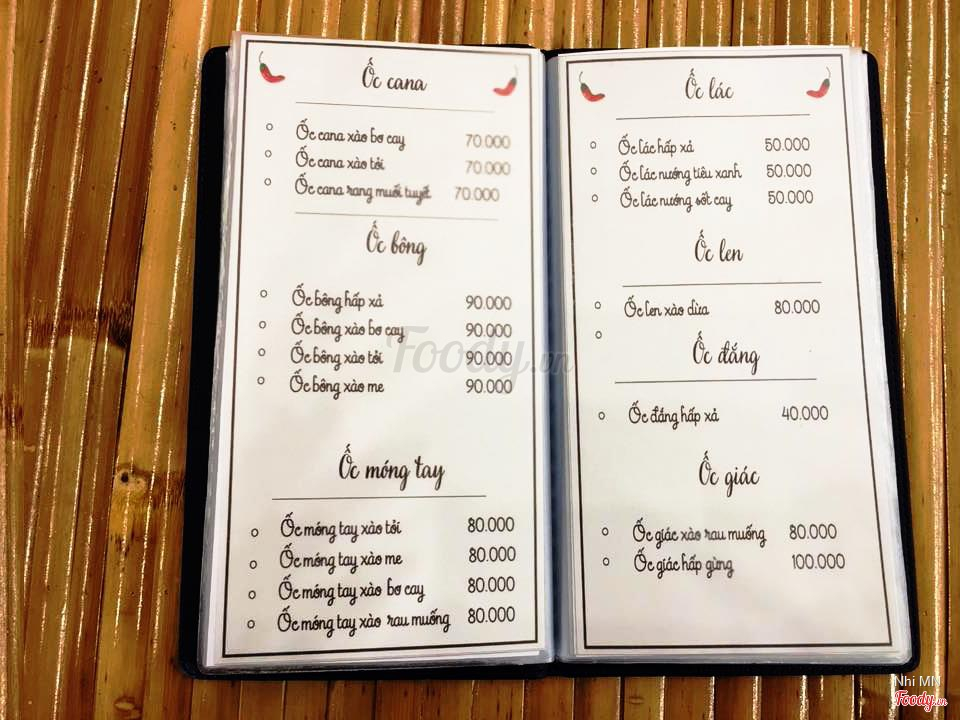 Ốc cana
Ốc cana xào bơ cay 70.000
Ốc cana xào tỏi 70.000
Ốc cana rang muối tuyết 70.000
Ốc bông
Ốc bông hấp xả 90.000
Ốc bông xào bơ cay 90.000
Ốc bông xào tỏi 90.000
Ốc bông xào me 90.000
Ốc móng tay
Ốc móng tay xào tỏi 80.000
Ốc móng tay xào me 80.000
Ốc móng tay xào bơ cay 80.000
Ốc móng tay xào rau muống 80.000
Ốc lác
Ốc lác hấp xả 50.000
Ốc lác nướng tiêu xanh 50.000
Ốc lác nướng sốt cay 50.000
Ốc len
Ốc len xào dừa 80.000
Ốc đắng
Ốc đắng hấp xả 40.000
Ốc giác
Ốc giác xào rau muống 80.000
Ốc giác hấp gừng 100.000
Foody.vn
Nhi MM
Foody.vn